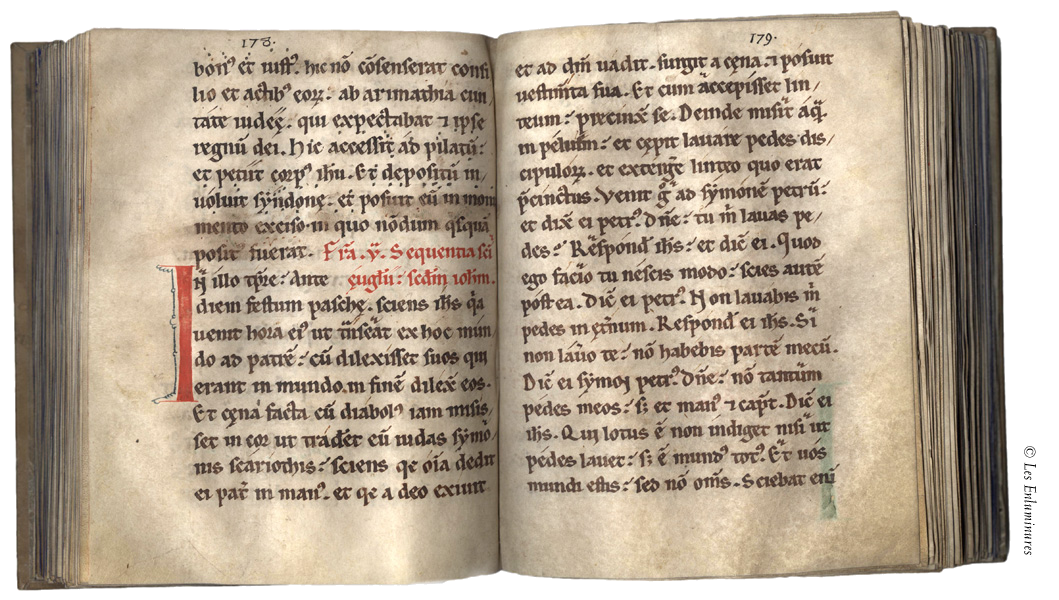 178.
bon᷒ et iust᷒. hic nō cōsenserat consi
lio et actib᷒ eoꝝ. ab arimathia ciui
tate iudeę. qui expectabat ⁊ ipse
regnū dei. Hic accessit ad pilatū:
et petiit corp᷒ ihu. Et depositū in/
uoluit syndone. et posuit eū in moni
mento exciso. in quo nōdum q̄squā
posit᷒ fuerat. Sequentia sc̄i
In illo tp̄re: Ante eu͞gl͞ii: sc͞dm ioh͞m.
diem festum paschę. sciens ih̄s q̄a
uenit hora ei᷒ ut t̄nseat ex hoc mun/
do ad patrē: cū dilexisset suos qui
erant in mundo. in finē dilex̄ eos.
Et cęna facta cū diabol᷒ iam misis/
set in cor ut traderet eū iudas symo/
nis scariothis: sciens qe om̄ia dedit
ei pat̄ in man᷒. et qe a deo exiuit
179.
et ad dm̄ uadit. surgit a cęna. ⁊ posuit
uestim̄ta sua. Et cum accepisset lin/
teum: precinx̄ se. Deinde misit aq̄
in peluim: et cępit lauare pedes dis/
cipuloꝝ. et extergē linteo quo erat
p̄cinctus. Venit g̊ ad symonē petrū:
et dix̄ ei petr᷒. Dn̄e: tu m̄ lauas pe/
des: Respond̄ ih̄s: et dic̄ ei. Quod
ego facio tu nescis modo: scies autē
postea. Dic̄ ei petr᷒. Non lauabis m̄
pedes in ęt̄num. Respond̄ ei ih̄s. Si
non lauo te: nō habebis partē mecū.
Dic̄ ei symon petr᷒. Dn̄e: nō tantum
pedes meos: sꝫ et man᷒ ⁊ cap̄t. Dic̄ ei
ih̄s. Qui lotus ē non indiget nisi ut
pedes lauet: sꝫ ē mund᷒ tot᷒. Et uos
mundi estis: sed nō om̄s. Sciebat eni
© Les Enluminures